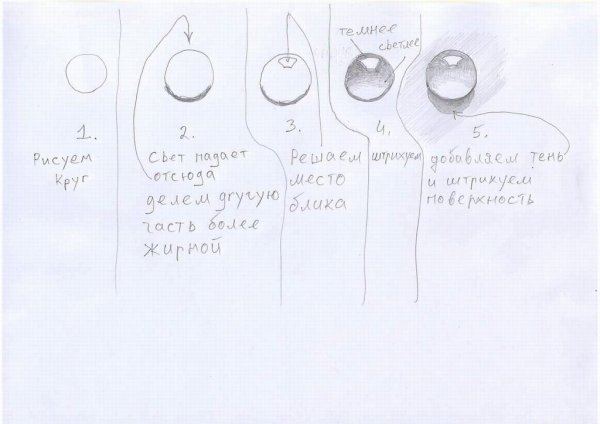 1.
Рисуем
круг
2.
Свет падает
отсюда
делем другую
часть более
жирной
3.
Решаем
место
блика
темнее
светлее
4.
штрихуем
5.
добавляем тень
и штрихуем
поверхность